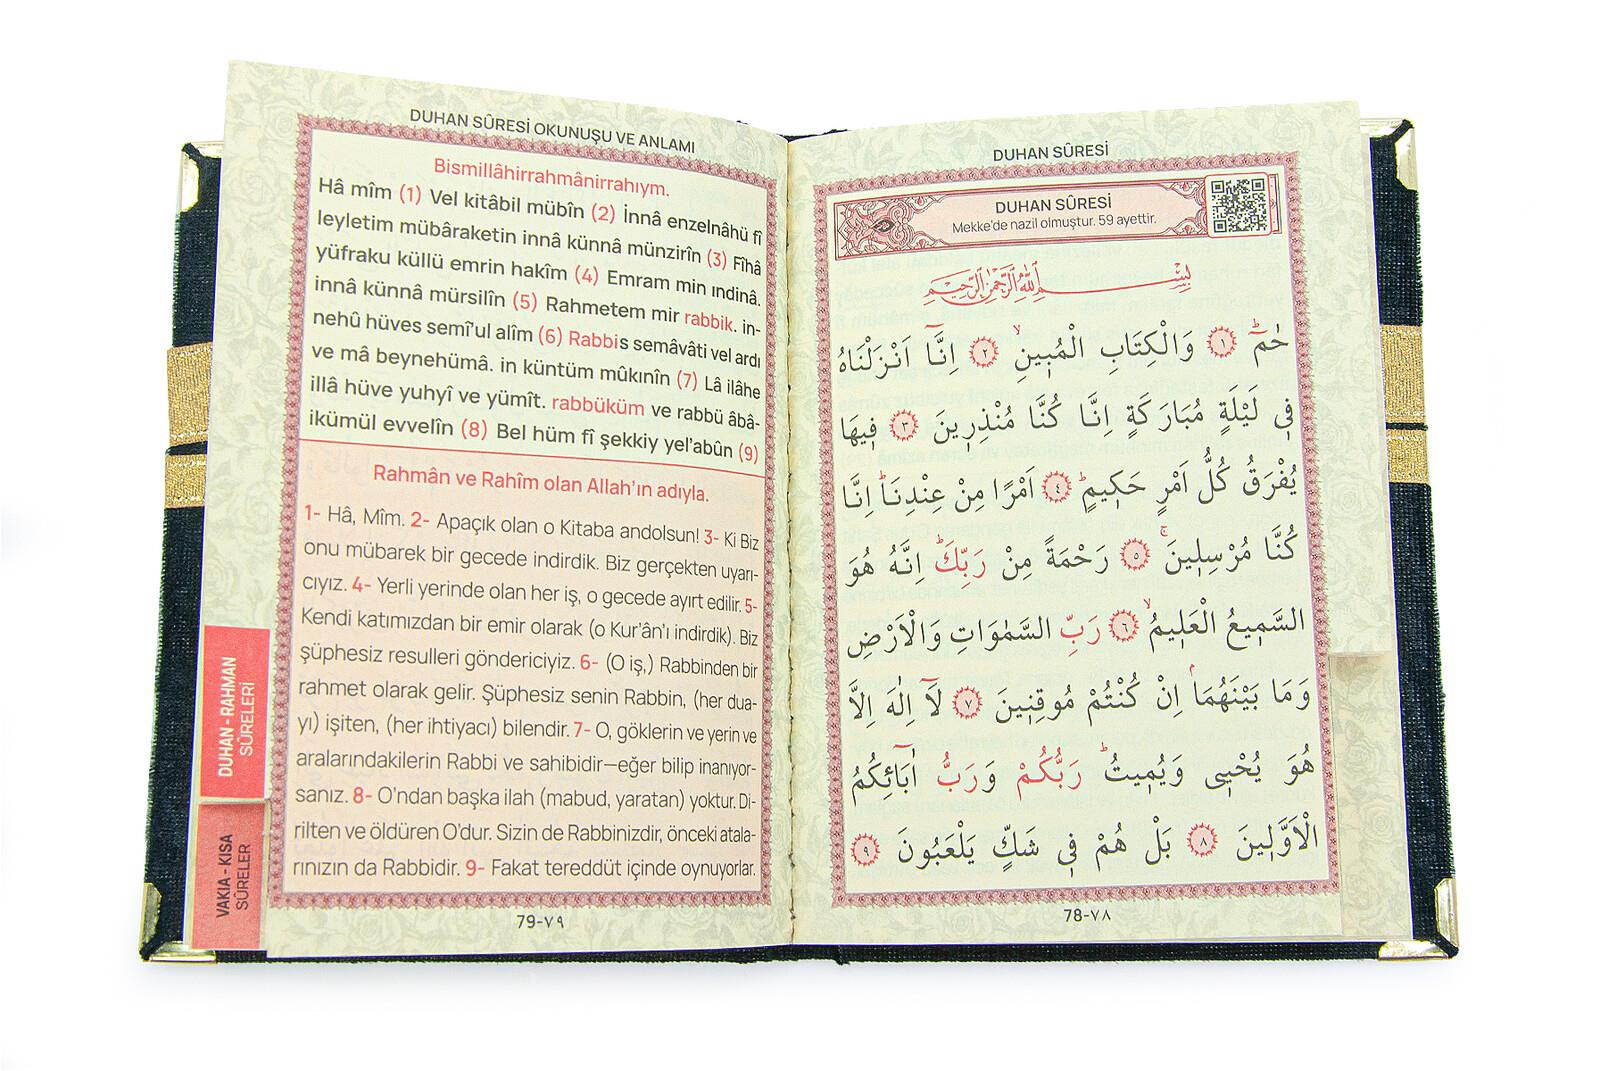 DUHAN SÛRESİ OKUNUŞU VE ANLAMI
Bismillâhirrahmânirrahıym.
Hâ mîm (1) Vel kitâbil mübîn (2) İnnâ enzelnâhü fî
leyletim mübâraketin innâ künnâ münzirîn (3) Fîhâ
yüfraku küllü emrin hakîm (4) Emram min ındinâ.
innâ künnâ mürsilîn (5) Rahmetem mir rabbik. in-
nehû hüves semî'ul alîm (6) Rabbis semâvâti vel ardı
ve mâ beynehümâ. in küntüm mûkınîn (7) Lâ ilâhe
illâ hüve yuhyî ve yümît. rabbüküm ve rabbü âbâ-
ikümül evvelîn (8) Bel hüm fî şekkiy yel'abûn (9)
Rahmân ve Rahîm olan Allah'ın adıyla.
1- Hâ, Mîm. 2- Apaçık olan o Kitaba andolsun! 3- Ki Biz
onu mübarek bir gecede indirdik. Biz gerçekten uyarı-
cıyız. 4- Yerli yerinde olan her iş, o gecede ayırt edilir. 5-
Kendi katımızdan bir emir olarak (o Kur'ân'ı indirdik). Biz
şüphesiz resulleri göndericiyiz. 6- (O iş,) Rabbinden bir
rahmet olarak gelir. Şüphesiz senin Rabbin, (her dua-
yı) işiten, (her ihtiyacı) bilendir. 7- O, göklerin ve yerin ve
aralarındakilerin Rabbi ve sahibidir—eğer bilip inanıyor-
sanız. 8- O'ndan başka ilah (mabud, yaratan) yoktur. Di-
rilten ve öldüren O'dur. Sizin de Rabbinizdir, önceki atala-
rınızın da Rabbidir. 9- Fakat tereddüt içinde oynuyorlar.
79-٧٩
DUHAN - RAHMAN
SÛRELERİ
VAKIA - KISA
SÛRELER
DUHAN SÛRESİ
DUHAN SÛRESİ
Mekke'de nazil olmuştur. 59 ayettir.
بِسْمِ اللّٰهِ الرَّحْمٰنِ الرَّحِيمِ
حٰمٓ ۚ ﴿١﴾ وَالْكِتَابِ الْمُبٖينِ ۙ ﴿٢﴾ اِنَّٓا اَنْزَلْنَاهُ
فٖي لَيْلَةٍ مُبَارَكَةٍ اِنَّا كُنَّا مُنْذِرٖينَ ﴿٣﴾ فٖيهَا
يُفْرَقُ كُلُّ اَمْرٍ حَكٖيمٍ ۚ ﴿٤﴾ اَمْرًا مِنْ عِنْدِنَا ۚ اِنَّا
كُنَّا مُرْسِلٖينَ ۚ ﴿٥﴾ رَحْمَةً مِنْ رَبِّكَ ۚ اِنَّهُ هُوَ
السَّمٖيعُ الْعَلٖيمُ ۙ ﴿٦﴾ رَبِّ السَّمٰوَاتِ وَالْاَرْضِ
وَمَا بَيْنَهُمَا ۢ اِنْ كُنْتُمْ مُوقِنٖينَ ﴿٧﴾ لَٓا اِلٰهَ اِلَّا
هُوَ يُحْيٖى وَيُمٖيتُ ۚ رَبُّكُمْ وَرَبُّ اٰبَٓائِكُمُ
الْاَوَّلٖينَ ﴿٨﴾ بَلْ هُمْ فٖي شَكٍّ يَلْعَبُونَ ﴿٩﴾
78-٧٨